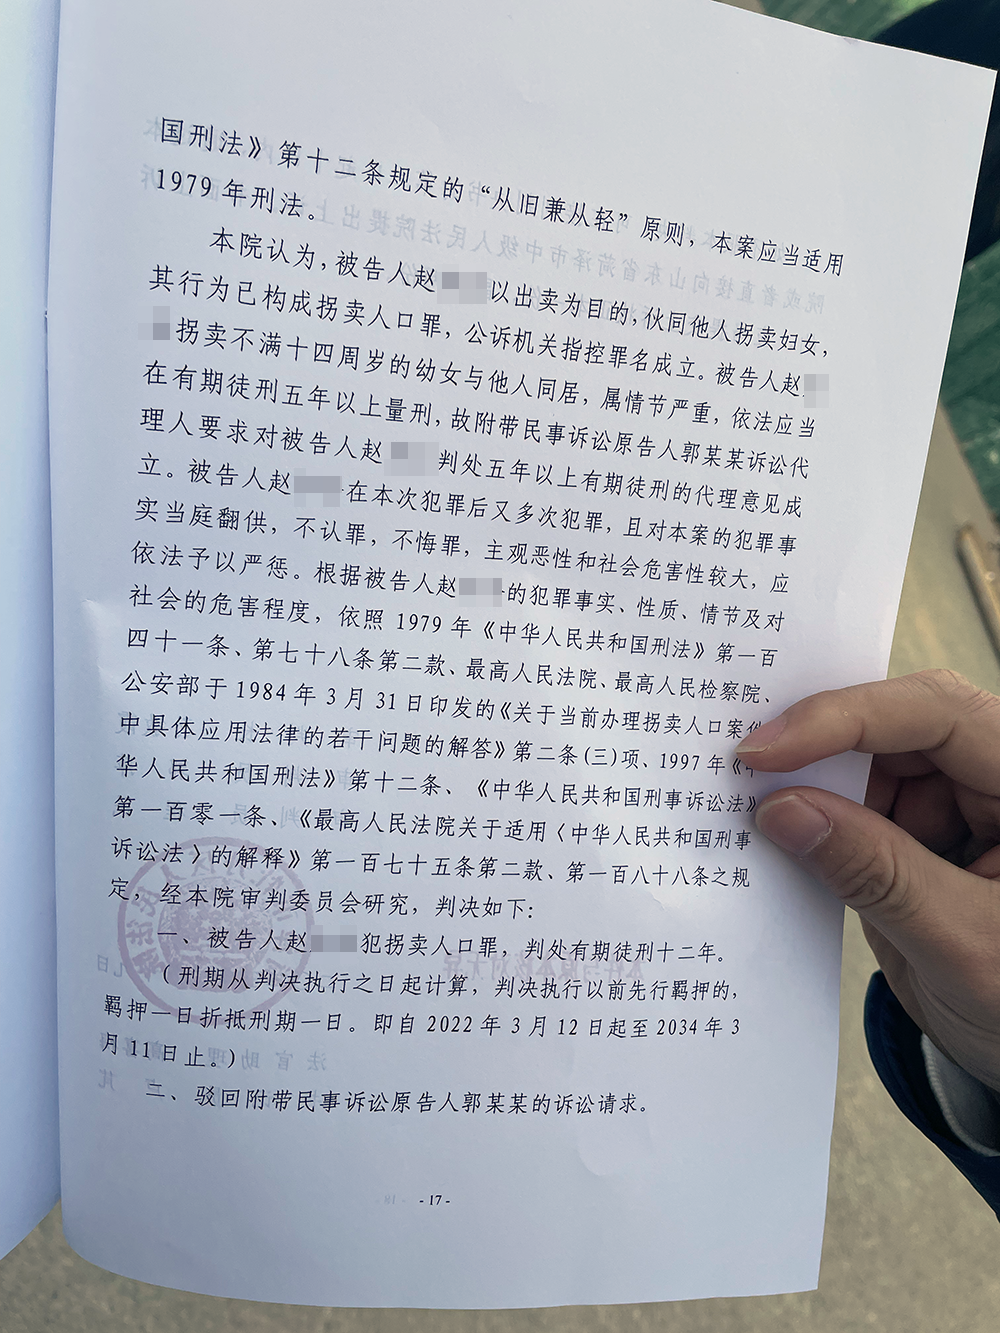 国刑法》第十二条规定的“从旧兼从轻”原则，本案应当适用
1979年刑法。
本院认为，被告人赵 以出卖为目的，伙同他人拐卖妇女，
其行为已构成拐卖人口罪，公诉机关指控罪名成立。被告人赵
拐卖不满十四周岁的幼女与他人同居，属情节严重，依法应当
在有期徒刑五年以上量刑，故附带民事诉讼原告人郭某某诉讼代
理人要求对被告人赵 判处五年以上有期徒刑的代理意见成
立。被告人赵 在本次犯罪后又多次犯罪，且对本案的犯罪事
实当庭翻供，不认罪，不悔罪，主观恶性和社会危害性较大，应
依法予以严惩。根据被告人赵 的犯罪事实、性质、情节及对
社会的危害程度，依照1979年《中华人民共和国刑法》第一百
四十一条、第七十八条第二款、最高人民法院、最高人民检察院、
公安部于1984年3月31日印发的《关于当前办理拐卖人口案件
中具体应用法律的若干问题的解答》第二条(三)项、1997年《中
华人民共和国刑法》第十二条、《中华人民共和国刑事诉讼法》
第一百零一条、《最高人民法院关于适用〈中华人民共和国刑事
诉讼法〉的解释》第一百七十五条第二款、第一百八十八条之规
定，经本院审判委员会研究，判决如下：
一、被告人赵 犯拐卖人口罪，判处有期徒刑十二年。
（刑期从判决执行之日起计算，判决执行以前先行羁押的，
羁押一日折抵刑期一日。即自2022年3月12日起至2034年3
月11日止。）
二、驳回附带民事诉讼原告人郭某某的诉讼请求。
- 17 -